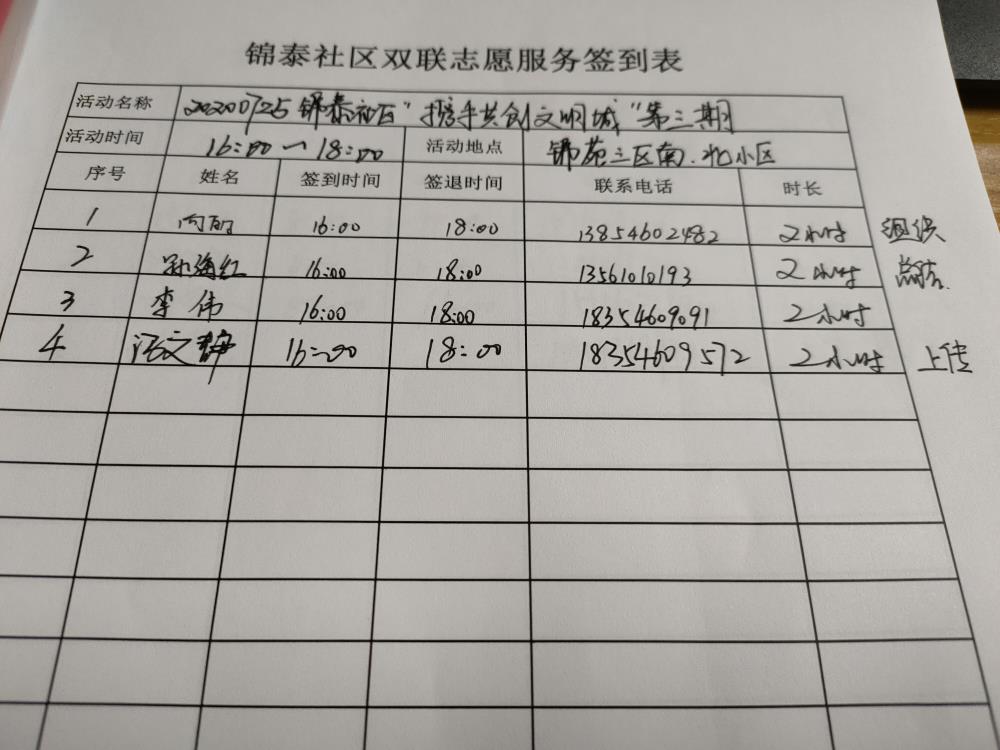 锦泰社区双联志愿服务签到表
活动名称 20200725锦泰社区"携手共创文明城"第三期
活动时间 16:00—18:00 活动地点 锦苑三区南、北小区
序号 姓名 签到时间 签退时间 联系电话 时长
1 向丽 16:00 18:00 13854602482 2小时 组织
2 孙海红 16:00 18:00 13561010193 2小时 总结.
3 李伟 16:00 18:00 18354609091 2小时
4 汪文静 16:00 18:00 18354609572 2小时 上传